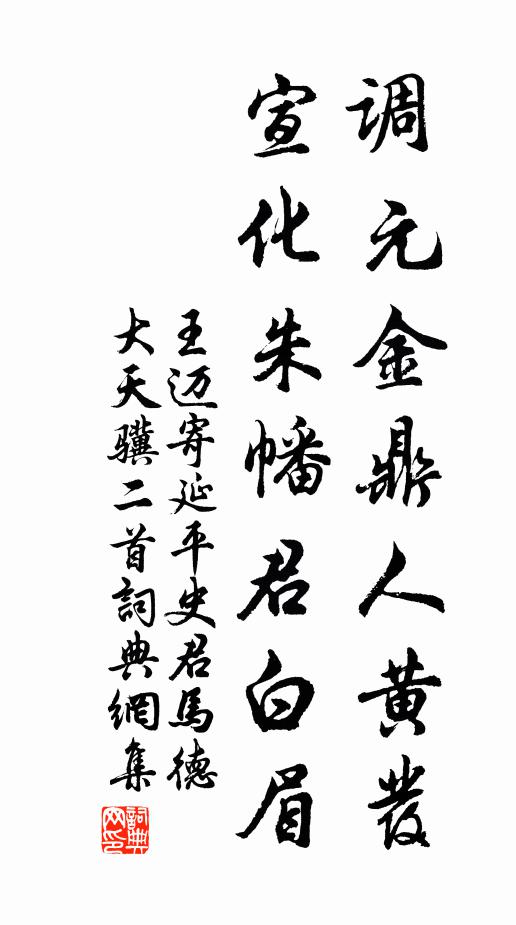 调元金鼎人黄發
宣化朱幡君白眉
王迈寄延平史君馬德
大天骥二首詞典網集
詞典
网印